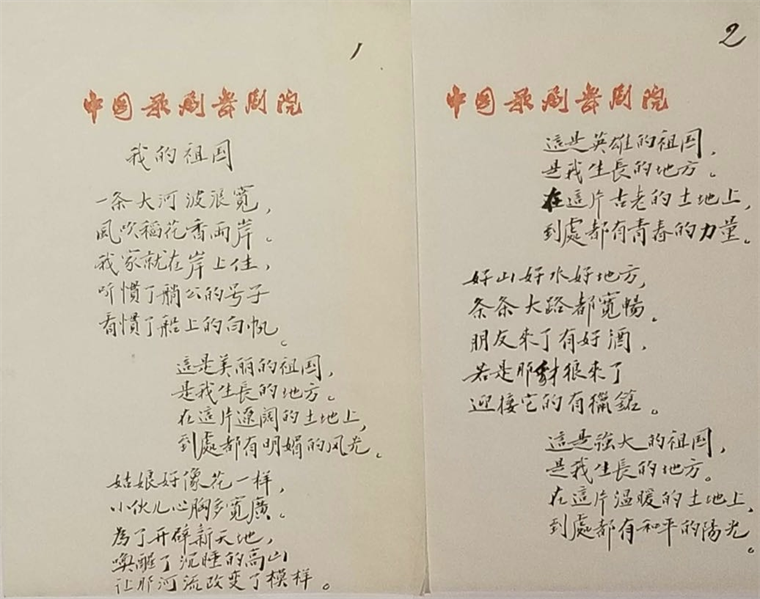 1
中国歌剧舞剧院
我的祖国
一条大河波浪寬，
风吹稻花香两岸。
我家就在岸上住，
听慣了艄公的号子
看慣了船上的白帆。
這是美丽的祖国，
是我生長的地方。
在這片遼闊的土地上，
到處都有明媚的风光。
姑娘好像花一样，
小伙儿心胸多寬廣。
為了开辟新天地，
喚醒了沉睡的高山
让那河流改变了模样。
2
中国歌剧舞剧院
這是英雄的祖国，
是我生長的地方。
在這片古老的土地上，
到處都有青春的力量。
好山好水好地方，
条条大路都寬暢。
朋友来了有好酒，
若是那豺狼来了
迎接它的有獵鎗。
這是強大的祖国，
是我生長的地方。
在這片温暖的土地上，
到處都有和平的陽光。